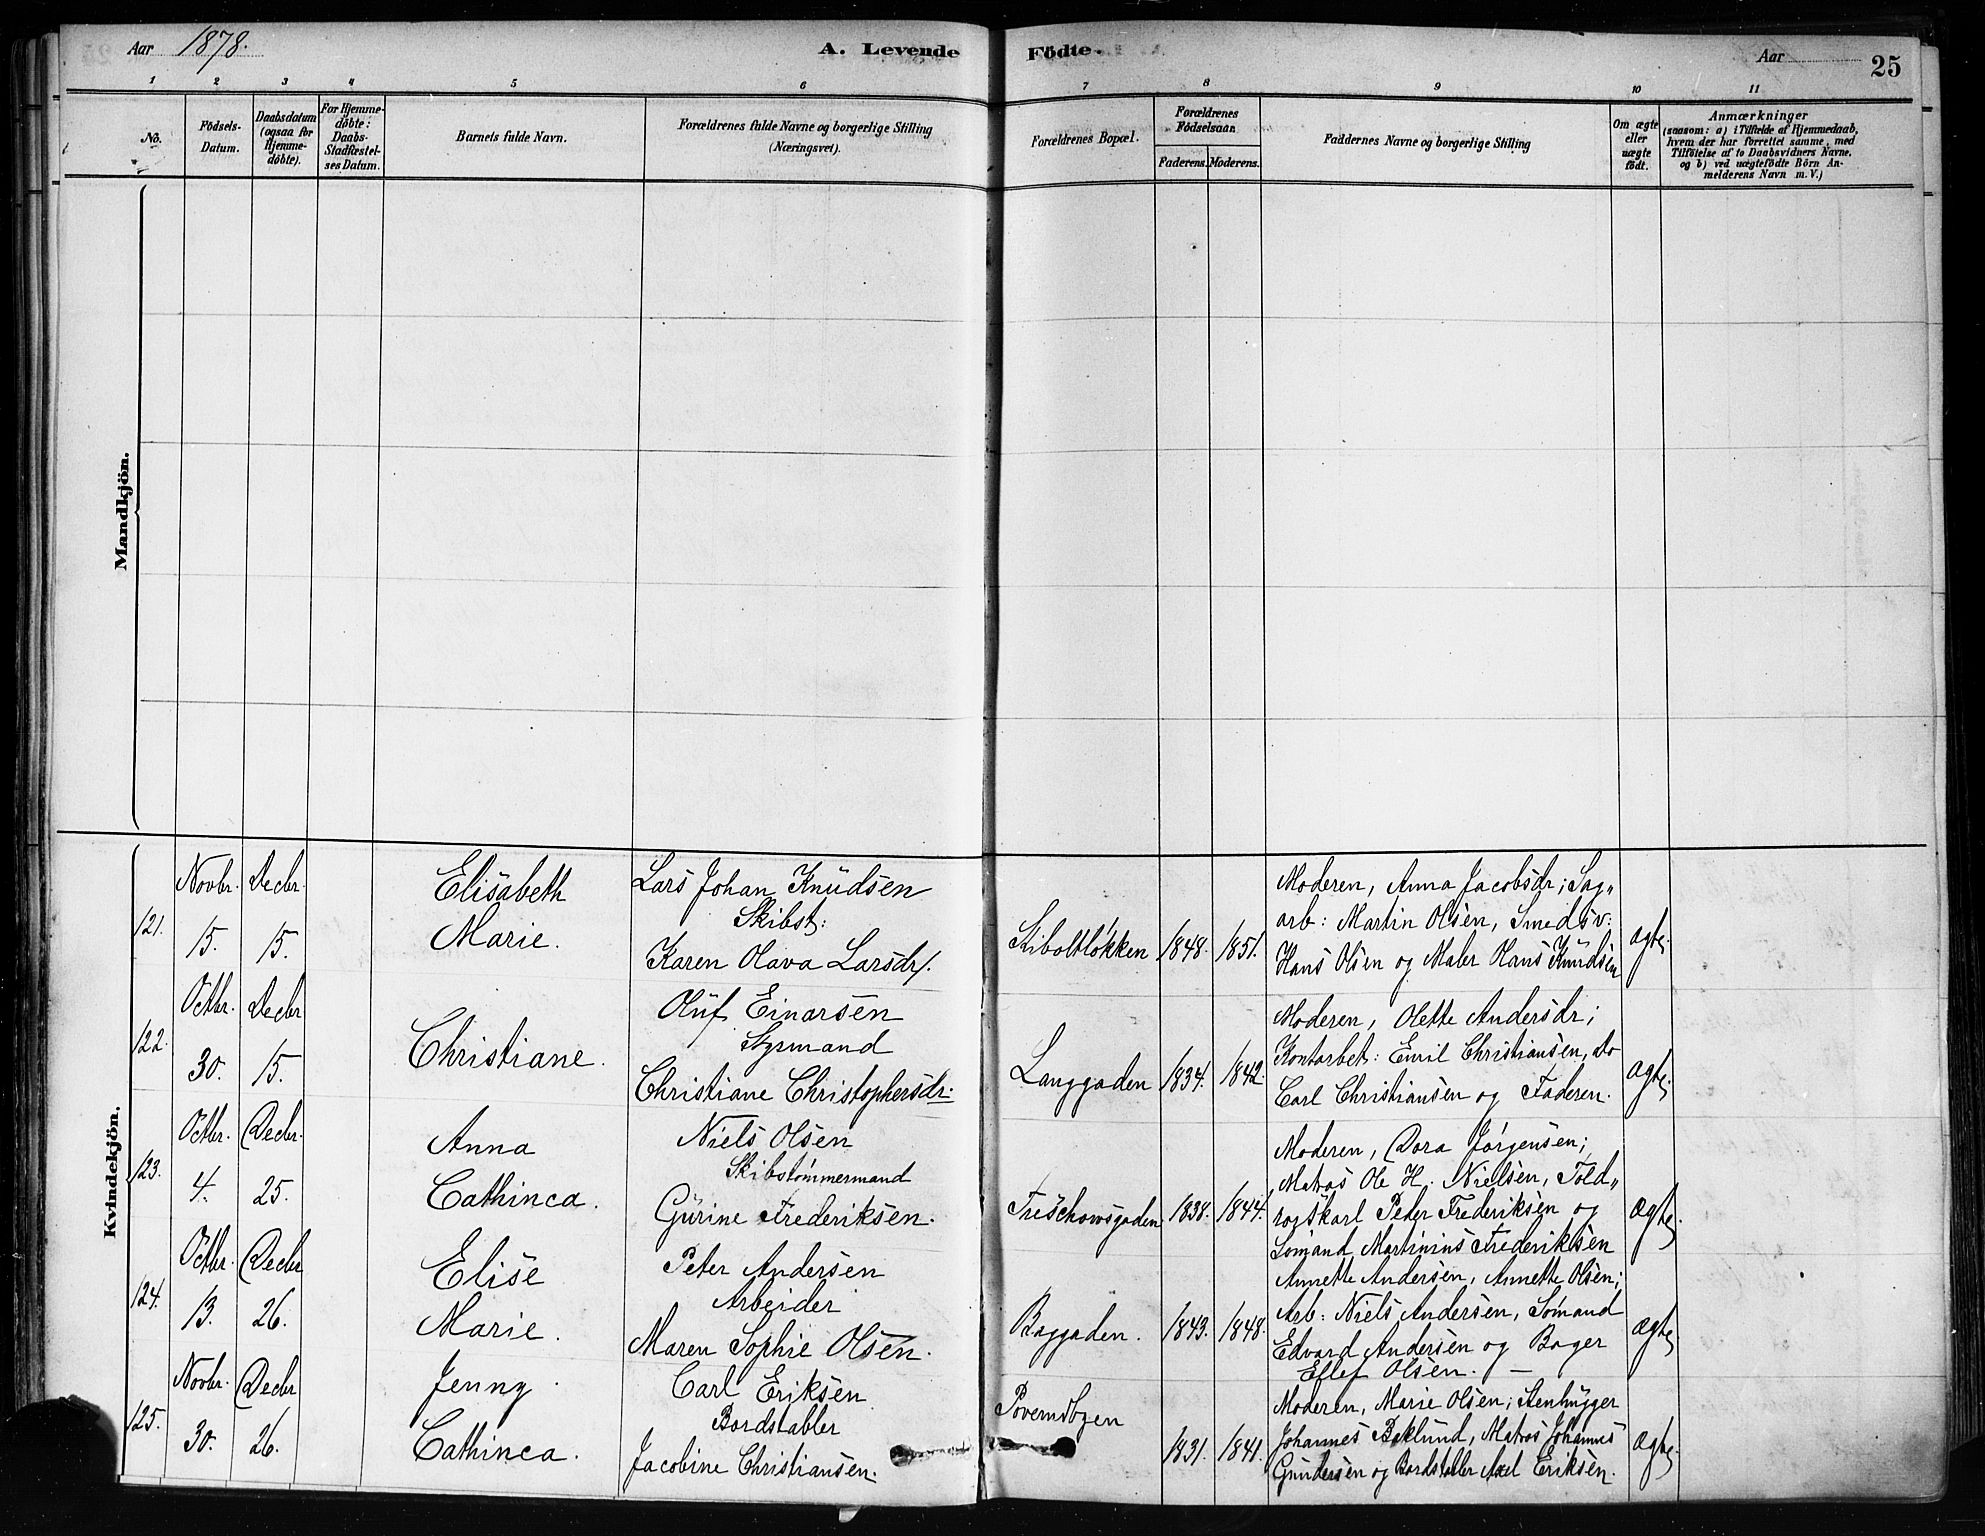 Aar 1878.
A. Levende Födte.
Aar
25
1 2 3 4 5 6 7 8 9 10 11
No.
Födsels-
Datum.
Daabsdatum
(ogsaa for
Hjemme-
döbte).
For Hjemme-
döbte:
Daabs-
Stadfæstel-
ses Datum.
Barnets fulde Navn.
Forældrenes fulde Navne og borgerlige Stilling
(Næringsvei).
Forældrenes Bopæl.
Forældrenes
Födselsaar.
Faderens. Moderens.
Faddernes Navne og borgerlige Stilling
Om ægte
eller
uægte
födt.
Anmærkninger
(saasom: a) i Tilfælde af Hjemmedaab,
hvem der har forrettet samme, med
Tilföielse af to Daabsvidners Navne,
og b) ved uægtefödte Börn An-
melderens Navn m. V.)
Mandkjön.
Kvindekjön.
121.
Novbr. 15.
Decbr. 15.
Elisabeth
Marie.
Lars Johan Knudsen
Skibst:
Karen Olava Larsdr.
Skiboltløkken
1848. 1851.
Moderen, Anna Jacobsdr; Sag„
arb: Martin Olsen, Smedsv:
Hans Olsen og Maler Hans Knudsen
ægte.
122.
Octbr. 30.
Decbr 15.
Christiane.
Oluf Einarsen
Styrmand
Christiane Christophersdr.
Langgaden
1834. 1842.
Moderen, Olette Andersdr;
Kontorbet: Emil Christiansen, do
Carl Christiansen og Faderen.
ægte.
123.
Octbr. 4.
Decbr. 25.
Anna
Cathinca.
Niels Olsen
Skibstømmermand
Gurine Frederiksen.
Treschowsgaden
1838. 1844.
Moderen, Dora Jørgensen;
Matros Ole H. Nielsen, Told„
rorskarl Peter Frederiksen og
Sømand Martinius Frederiksen
Ægte.
124.
Octbr. 13.
Decbr 26.
Elise
Marie.
Peter Andersen
Arbeider
Maren Sophie Olsen.
Baggaden.
1843. 1848.
Annette Andersen, Annette Olsen;
Arb: Niels Andersen, Sømand
Edvard Andersen og Bager
Ellef Olsen. —
Ægte
125.
Novbr. 30.
Decbr 26.
Jenny
Cathinca.
Carl Eriksen
Bordstabler
Jacobine Christiansen.
1831. 1841.
Moderen, Marie Olsen; Stenhugger
Johannes Beklund, Matros Johannes
Gundersen og Bordstabler Axel Eriksen.
Ægte.